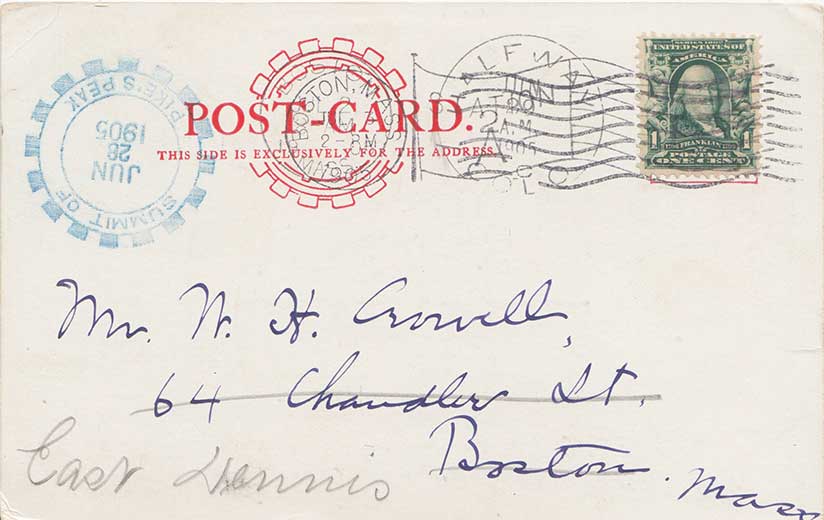 SUMMIT OF
PIKE'S PEAK
JUN
28
1905
POST-CARD.
THIS SIDE IS EXCLUSIVELY FOR THE ADDRESS.
BOSTON, MASS.
2-PM
1905
HALFWAY
COLO
SERIES 1902
UNITED STATES OF
AMERICA
FRANKLIN
POSTAGE
1 1
ONE CENT
Mr. W. H. Crowell,
64 Chandler St.
Boston
Mass
East Dennis